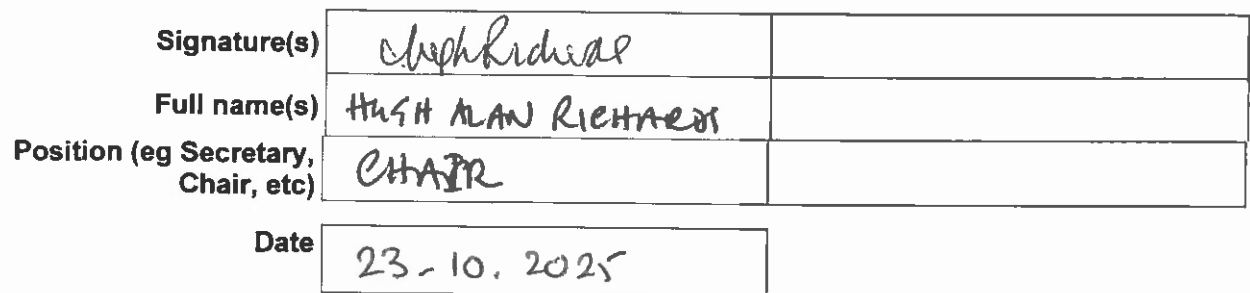 Signature(s) Hugh Richards
Full name(s) HUGH ALAN RICHARDS
Position (eg Secretary,
Chair, etc) CHAIR
Date 23-10.2025